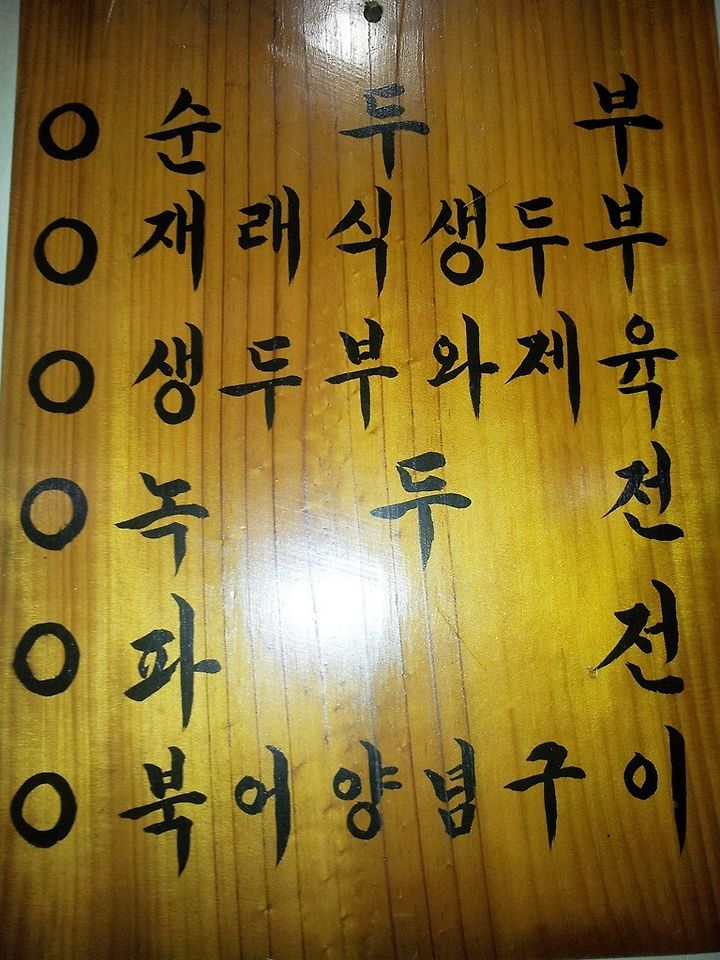 ○ 순 두 부
○ 재래식생두부
○ 생두부와제육
○ 녹 두 전
○ 파 전
○ 북어양념구이